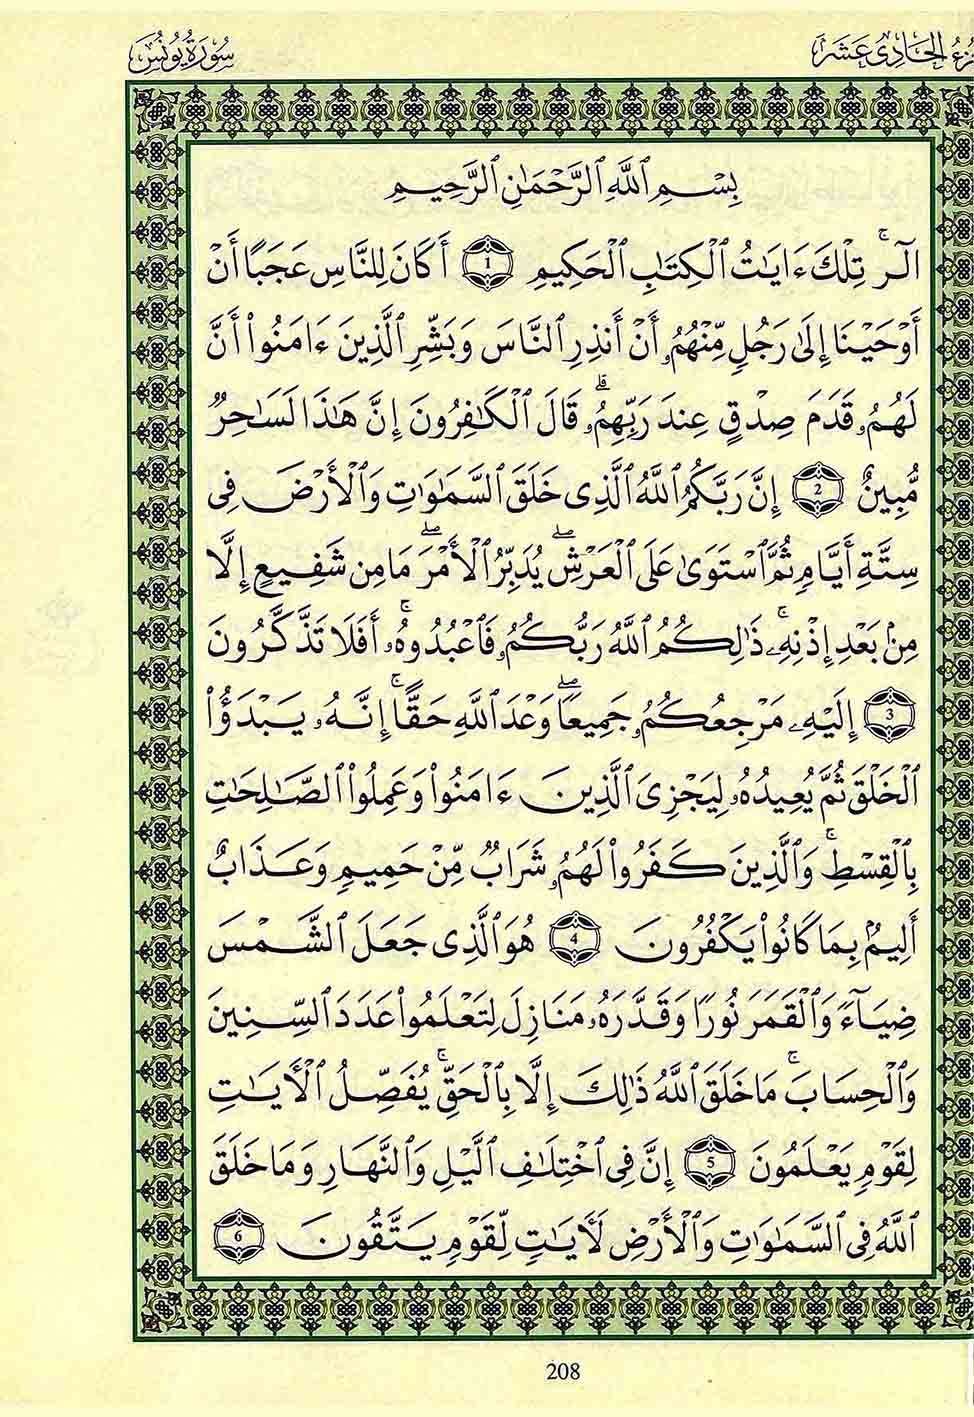 الجزء الحادي عشر
سورة يونس
بِسْمِ ٱللَّهِ ٱلرَّحْمَٰنِ ٱلرَّحِيمِ
الٓرۚ تِلْكَ ءَايَٰتُ ٱلْكِتَٰبِ ٱلْحَكِيمِ 1 أَكَانَ لِلنَّاسِ عَجَبًا أَنْ
أَوْحَيْنَا إِلَىٰ رَجُلٍ مِّنْهُمُۥ أَنْ أَنذِرِ ٱلنَّاسَ وَبَشِّرِ ٱلَّذِينَ ءَامَنُوا۟ أَنَّ
لَهُمُۥ قَدَمَ صِدْقٍ عِندَ رَبِّهِمُۥۗ قَالَ ٱلْكَٰفِرُونَ إِنَّ هَٰذَا لَسَٰحِرٌ
مُّبِينٌ 2 إِنَّ رَبَّكُمُ ٱللَّهُ ٱلَّذِى خَلَقَ ٱلسَّمَٰوَٰتِ وَٱلْأَرْضَ فِى
سِتَّةِ أَيَّامٍ ثُمَّ ٱسْتَوَىٰ عَلَى ٱلْعَرْشِۖ يُدَبِّرُ ٱلْأَمْرَۖ مَا مِن شَفِيعٍ إِلَّا
مِنۢ بَعْدِ إِذْنِهِۦۚ ذَٰلِكُمُ ٱللَّهُ رَبُّكُمُۥ فَٱعْبُدُوهُۥۚ أَفَلَا تَذَّكَّرُونَ
3 إِلَيْهِۦ مَرْجِعُكُمُۥ جَمِيعًاۖ وَعْدَ ٱللَّهِ حَقًّاۚ إِنَّهُۥ يَبْدَؤُا۟
ٱلْخَلْقَ ثُمَّ يُعِيدُهُۥ لِيَجْزِىَ ٱلَّذِينَ ءَامَنُوا۟ وَعَمِلُوا۟ ٱلصَّٰلِحَٰتِ
بِٱلْقِسْطِۚ وَٱلَّذِينَ كَفَرُوا۟ لَهُمُۥ شَرَابٌ مِّنْ حَمِيمٍ وَعَذَابٌ
أَلِيمٌۢ بِمَا كَانُوا۟ يَكْفُرُونَ 4 هُوَ ٱلَّذِى جَعَلَ ٱلشَّمْسَ
ضِيَآءً وَٱلْقَمَرَ نُورًا وَقَدَّرَهُۥ مَنَازِلَ لِتَعْلَمُوا۟ عَدَدَ ٱلسِّنِينَ
وَٱلْحِسَابَۚ مَا خَلَقَ ٱللَّهُ ذَٰلِكَ إِلَّا بِٱلْحَقِّۚ يُفَصِّلُ ٱلْأَيَٰتِ
لِقَوْمٍ يَعْلَمُونَ 5 إِنَّ فِى ٱخْتِلَٰفِ ٱلَّيْلِ وَٱلنَّهَارِ وَمَا خَلَقَ
ٱللَّهُ فِى ٱلسَّمَٰوَٰتِ وَٱلْأَرْضِ لَأَيَٰتٍ لِّقَوْمٍ يَتَّقُونَ 6
208